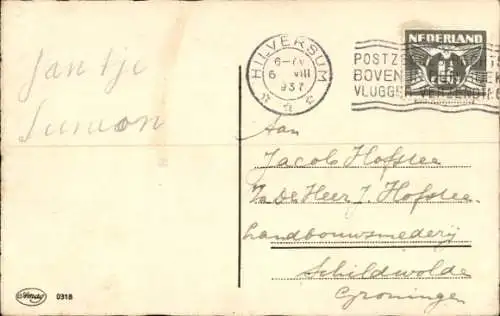 Jantje
Simon
HILVERSUM
6-7V
6 VIII
937
NEDERLAND
POSTZE
BOVEN
VLUGGE VERZENDING
Aan
Jacob Hofstee
p/a De Heer J. Hofstee.
Landbouwsmederij
Schildwolde
Groningen
0318